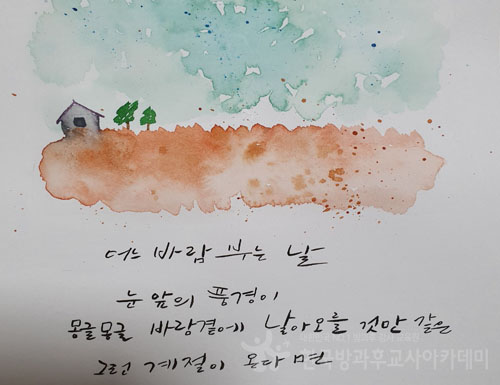 어느 바람 부는 날
눈 앞의 풍경이
몽글몽글 바람결에 날아오를 것만 같은
그런 계절이 온다 면
한국방과후교사아카데미